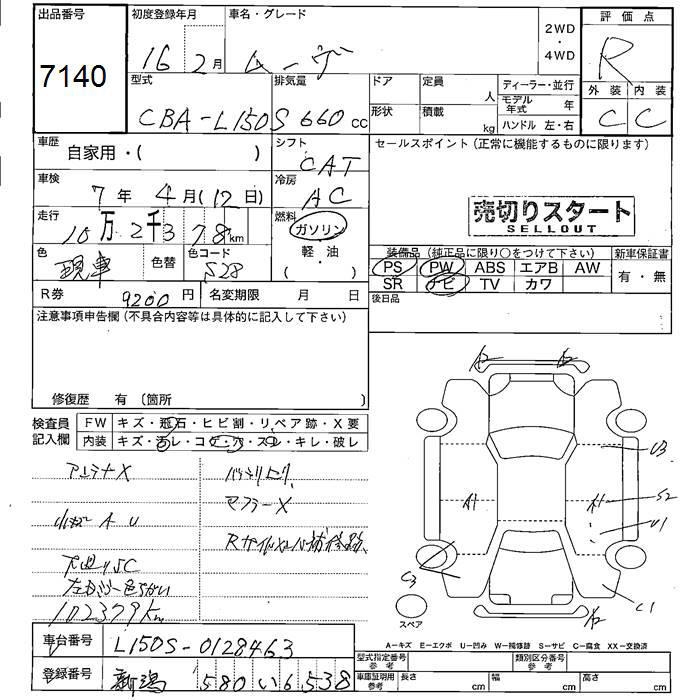 出品番号 初度登録年月 車名・グレード 2WD・4WD 評価点
7140 16 2月 ムーヴ R
型式 排気量 ドア 定員 人 ディーラー・並行 外装 内装
CBA-L150S 660cc 形状 積載 kg モデル年式 年 C C
ハンドル 左・右
車歴 自家用・( ) シフト CAT セールスポイント(正常に機能するものに限ります)
車検 7年 4月(12日) 冷房 AC
売切りスタート
SELLOUT
走行 10万2千378km 燃料 ガソリン
軽・油
( )
色 現車 色替 色コード S28
装備品(純正品に限り○をつけて下さい) 新車保証書
PS PW ABS エアB AW 有・無
SR ナビ TV カワ
R券 9200円 名変期限 月 日
後日品
注意事項申告欄(不具合内容等は具体的に記入して下さい)
修復歴 有(箇所
検査員記入欄 FW キズ・飛石・ヒビ割・リペア跡・X要
内装 キズ・汚レ・コゲ・穴・スレ・キレ・破レ
アンテナX
A U
下廻りSC
左 色ちがい
102379Km
マフラーX
A2 A2
U3
A1 A1 S2
U1
C3
C1
A2
スペア
A-キズ E-エクボ U-凹み W-補修跡 S-サビ C-腐食 XX-交換済
車台番号 L150S-0128463
登録番号 新潟 580 い 6538
型式指定番号参考 類別区分番号参考
車庫証明用参考 長さ cm 幅 cm 高さ cm